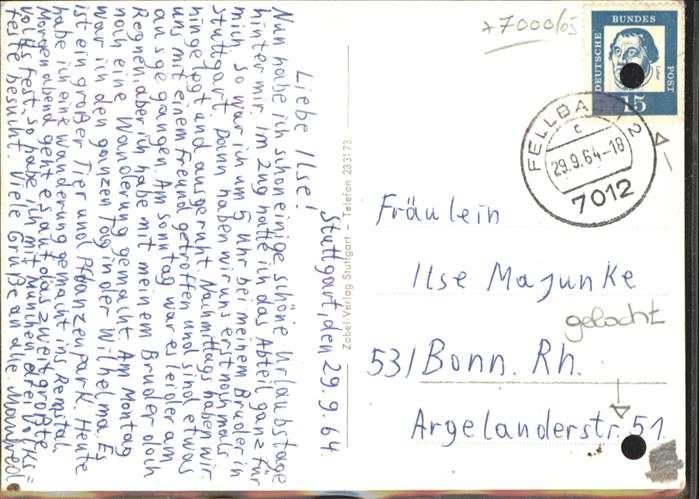 +7000/65
DEUTSCHE BUNDESPOST
15
FELLBACH 2
c
29.9.64-18
7012
Stuttgart, den 29.9.64
Liebe Ilse!
Nun habe ich schon einige schöne Urlaubstage
hinter mir. Im Zug hatte ich das Abteil ganz für
mich, so war ich um 5 Uhr bei meinem Bruder in
Stuttgart. Dann haben wir uns erst nochmals
hingelegt und ausgeruht. Nachmittags haben wir
uns mit einem Freund getroffen und sind etwas
ausgegangen. Am Sonntag war es leider am
Regnen aber ich habe mit meinem Bruder doch
noch eine Wanderung gemacht. Am Montag
war ich den ganzen Tag in der Wilhelma. Es
ist ein großer Tier und Pflanzenpark. Heute
habe ich eine Wanderung gemacht ins Remstal.
Morgen abend geht es auf das zweitgrößte
Volksfest, so habe ich mit München drei Volks=
feste besucht. Viele Grüße an alle. Manfred
Zobel-Verlag Stuttgart – Telefon 233173
Fräulein
Ilse Majunke
gelocht
53/ Bonn. Rh.
Argelanderstr. 51.